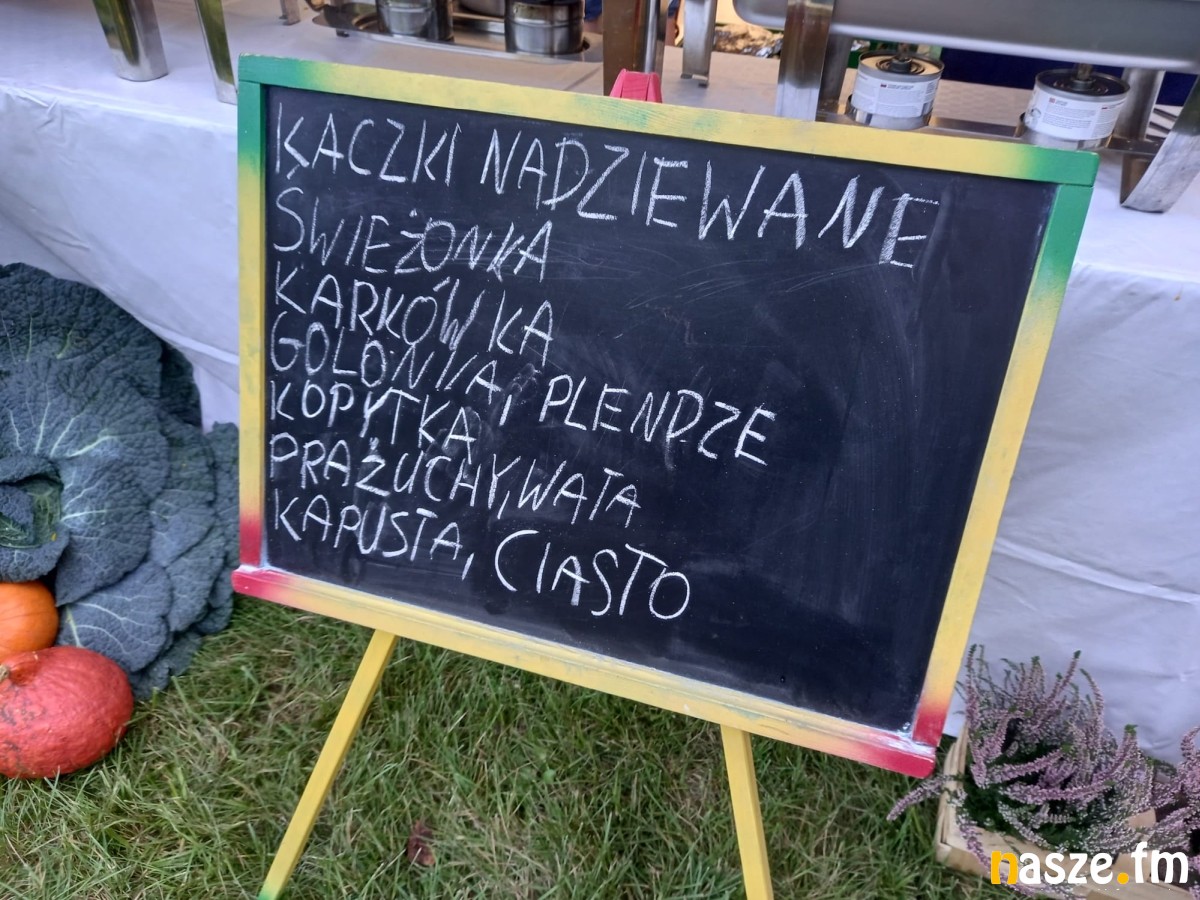 KACZKI NADZIEWANE
ŚWIEŻONKA
KARKÓWKA
GOLONKA, PLENDZE
KOPYTKA,
PRAŻUCHY, WATA
KAPUSTA, CIASTO
nasze.fm